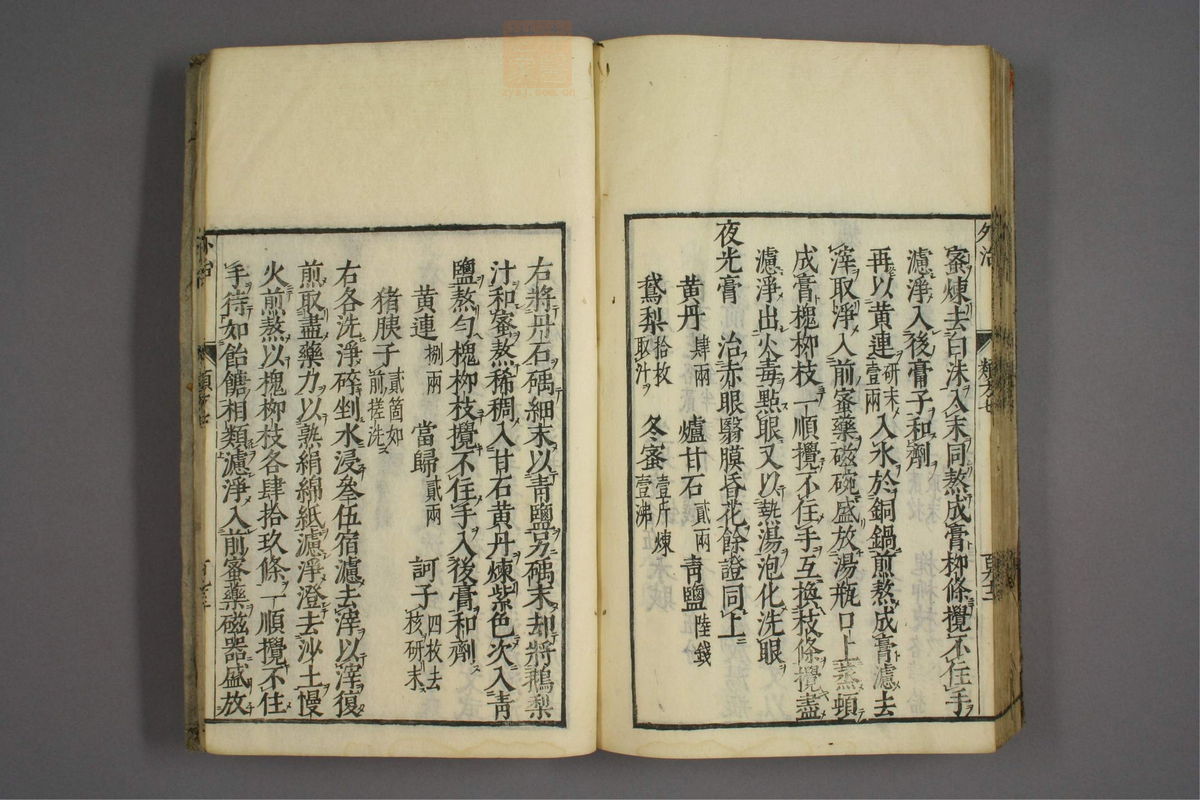 蜜煉去白沫入末同熬成膏柳條攪不住手
濾淨入後膏子和劑
再以黄連研末壹兩入水於銅鍋煎熬成膏濾去
滓取淨入前蜜藥磁碗盛放湯瓶口上蒸頓
成膏槐柳枝一順攪不住手互換枝條攪盡
濾淨出火毒點眼又以熱湯泡化洗眼
夜光膏 治赤眼翳膜昏花餘證同上
黄丹肆兩 爐甘石貳兩 靑鹽陸錢
鵞梨拾枚取汁 冬蜜壹斤煉壹沸
右將丹石碢細末以靑鹽另碢末却將鵝梨
汁和蜜熬稀稠入甘石黄丹煉紫色次入靑
鹽熬勻槐柳枝攪不住手入後膏和劑
黄連捌兩 當歸貳兩 訶子四枚去核研末
猪胰子貳箇如前搓洗
右各洗淨碎剉水浸叄伍宿濾去滓以滓復
煎取盡藥力以熟絹綿紙濾淨澄去沙土慢
火煎熬以槐柳枝各肆拾玖條一順攪不住
手待如飴餹相類濾淨入前蜜藥磁器盛放
外治
類方七